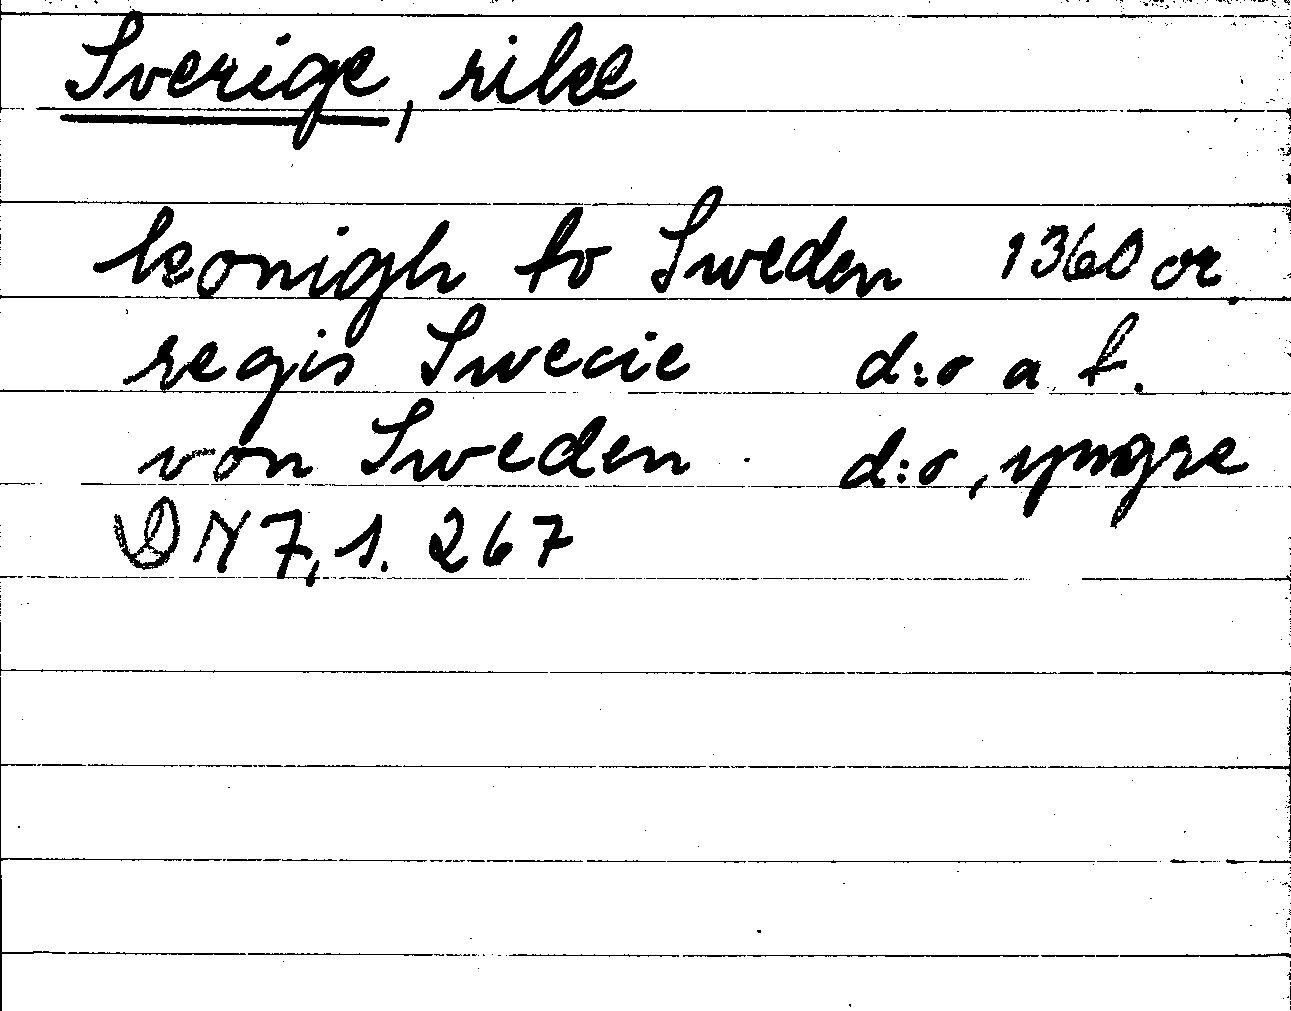 Sverige, rike
konigh to Sweden 1360 or.
regis Swecie d:o a t.
von Sweden d:o, yngre
DN 7, s. 267